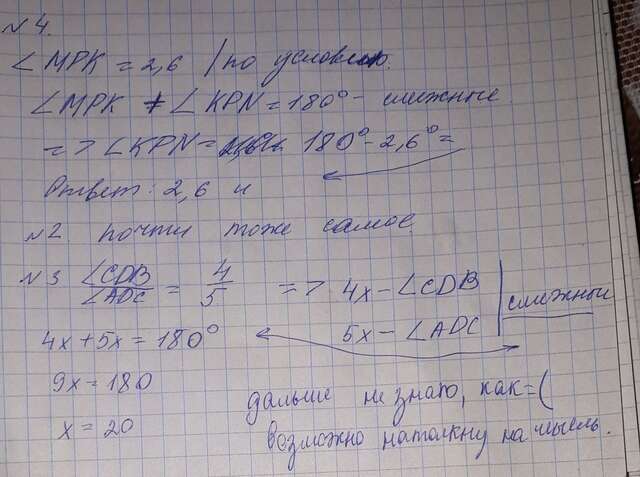 № 4.
∠MPK = 2,6 / по условию.
∠MPK + ∠KPN = 180° - смежные
=> ∠KPN = 180° - 2,6° =
Ответ: 2,6 и
№2 почти тоже самое.
№3 ∠CDB / ∠ADC = 4/5 => 4x - ∠CDB
5x - ∠ADC | смежный
4x + 5x = 180°
9x = 180
x = 20
дальше не знаю, как =(
возможно натолкну на мысль.